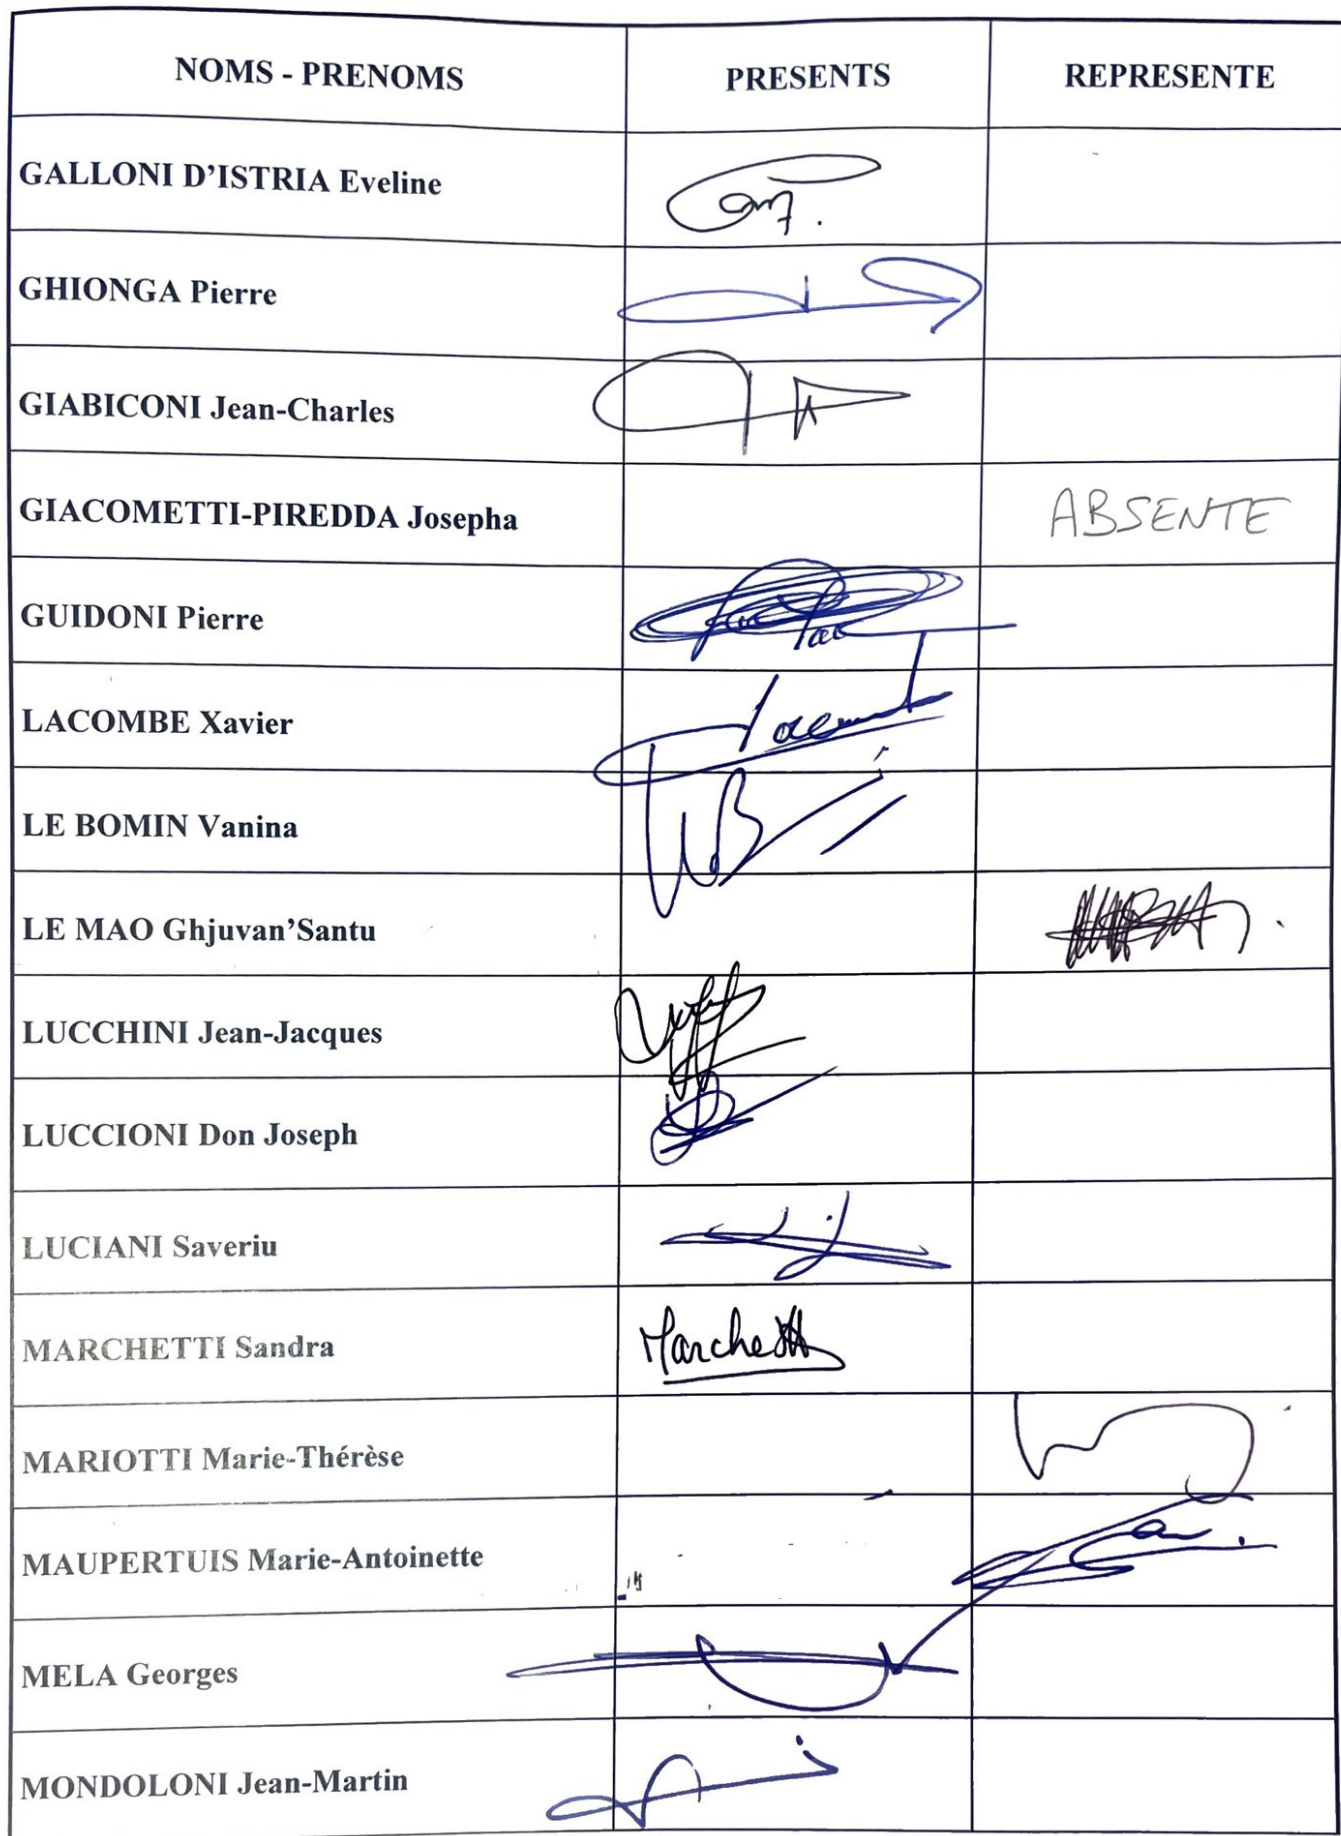 NOMS - PRENOMS PRESENTS REPRESENTE
GALLONI D'ISTRIA Eveline
GHIONGA Pierre
GIABICONI Jean-Charles
GIACOMETTI-PIREDDA Josepha ABSENTE
GUIDONI Pierre
LACOMBE Xavier
LE BOMIN Vanina
LE MAO Ghjuvan’Santu
LUCCHINI Jean-Jacques
LUCCIONI Don Joseph
LUCIANI Saveriu
MARCHETTI Sandra Marchetti
MARIOTTI Marie-Thérèse
MAUPERTUIS Marie-Antoinette
MELA Georges
MONDOLONI Jean-Martin